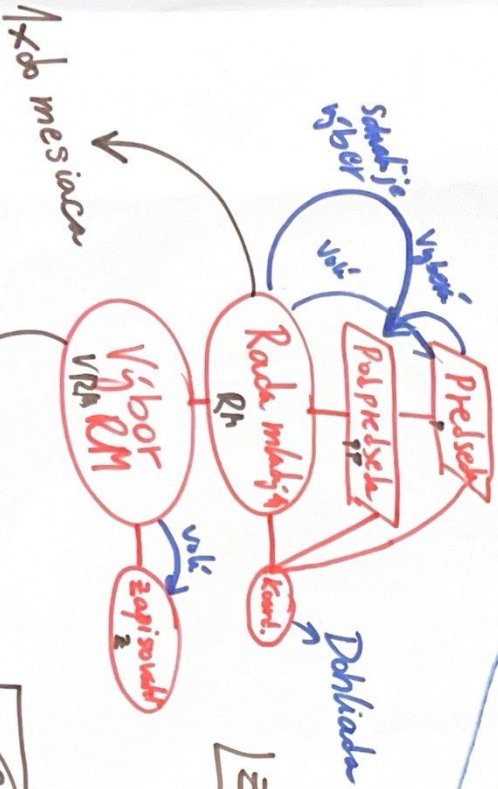 1x do mesiaca
Schvaľuje
výber
Vyberá
volí
Predseda
P
Podpredseda
PP
Rada mládeže
RM
Koord.
Dohliada
Výbor
RM
VRM
volí
zapisovateľ
Z